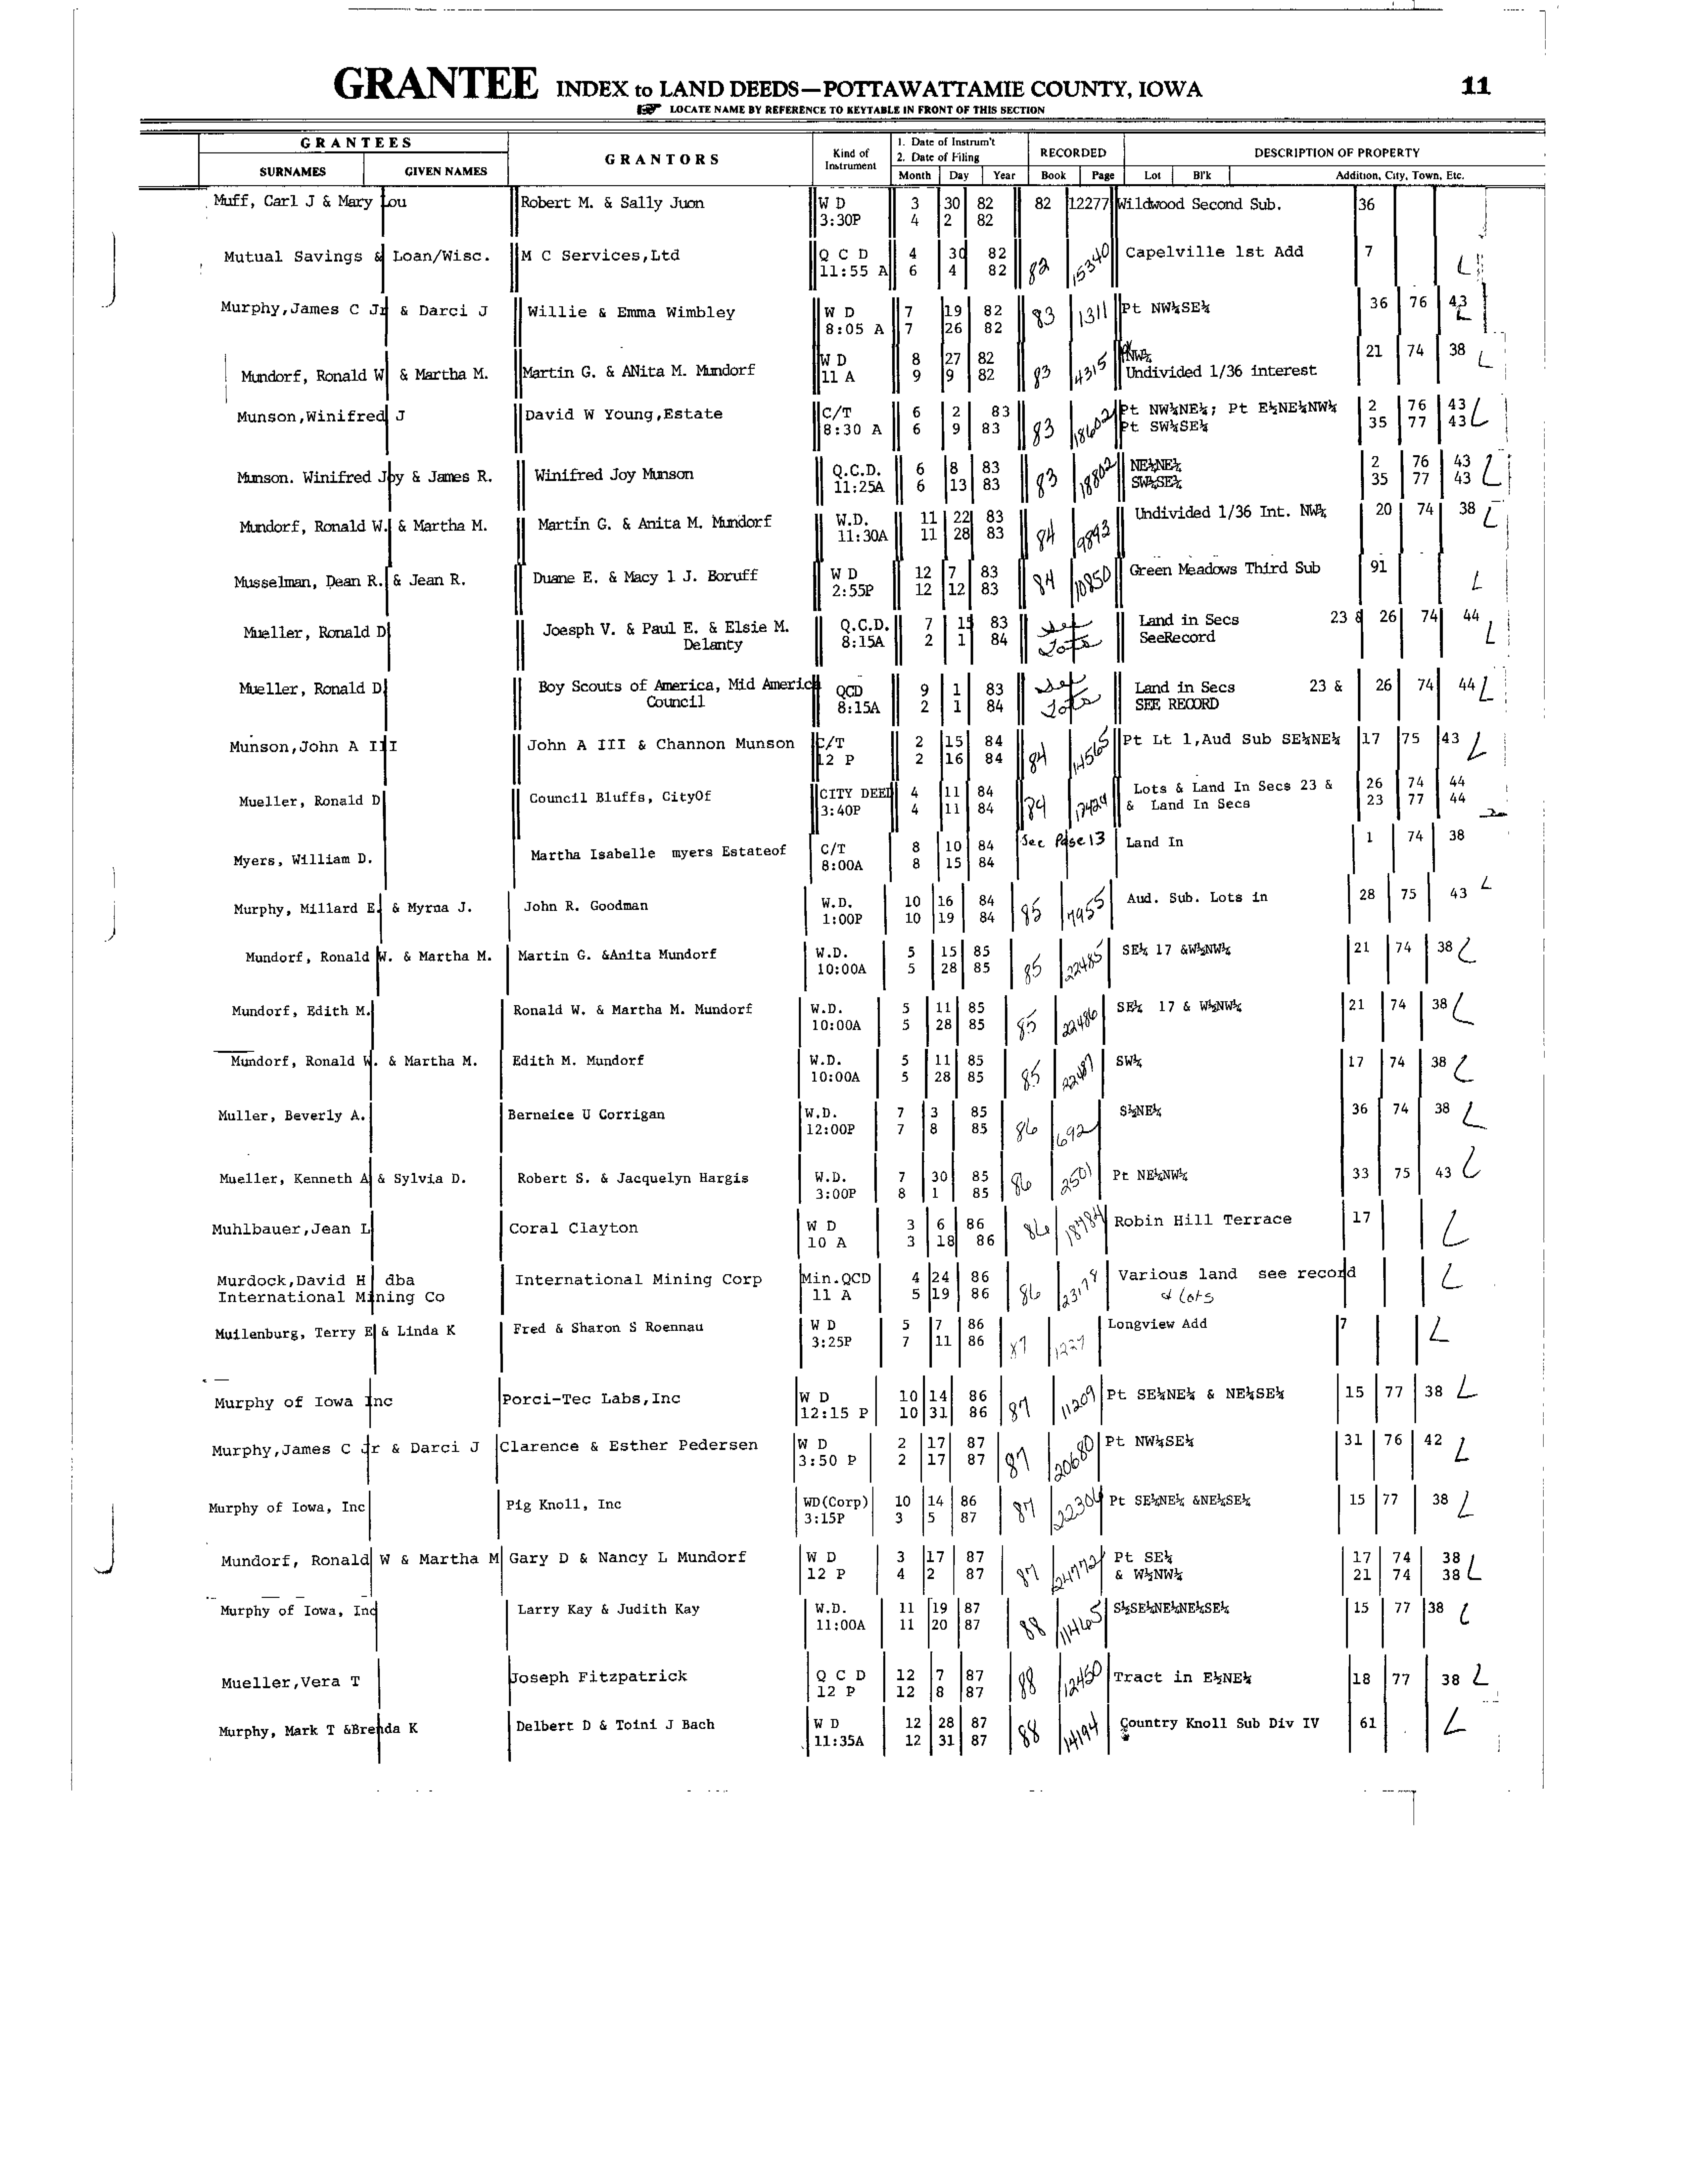 GRANTEE INDEX to LAND DEEDS—POTTAWATTAMIE COUNTY, IOWA 11
LOCATE NAME BY REFERENCE TO KEYTABLE IN FRONT OF THIS SECTION
GRANTEES GRANTORS Kind of Instrument 1. Date of Instrum't 2. Date of Filing RECORDED DESCRIPTION OF PROPERTY
SURNAMES GIVEN NAMES Month Day Year Book Page Lot Bl'k Addition, City, Town, Etc.
Muff, Carl J & Mary Lou Robert M. & Sally Juon W D 3 30 82 82 12277 Wildwood Second Sub. 36
3:30P 4 2 82
Mutual Savings & Loan/Wisc. M C Services,Ltd Q C D 4 30 82 82 15340 Capelville 1st Add 7
11:55 A 6 4 82
Murphy,James C Jr & Darci J Willie & Emma Wimbley W D 7 19 82 83 1311 Pt NW¼SE¼ 36 76 43
8:05 A 7 26 82
Mundorf, Ronald W & Martha M. Martin G. & ANita M. Mundorf W D 8 27 82 83 4315 NW¼ 21 74 38
11 A 9 9 82 Undivided 1/36 interest
Munson,Winifred J David W Young,Estate C/T 6 2 83 83 18602 Pt NW¼NE¼; Pt E½NE¼NW¼ 2 76 43
8:30 A 6 9 83 Pt SW¼SE¼ 35 77 43
Munson. Winifred Joy & James R. Winifred Joy Munson Q.C.D. 6 8 83 83 18802 NE¼NE¼ 2 76 43
11:25A 6 13 83 SW¼SE¼ 35 77 43
Mundorf, Ronald W. & Martha M. Martin G. & Anita M. Mundorf W.D. 11 22 83 84 9893 Undivided 1/36 Int. NW¼ 20 74 38
11:30A 11 28 83
Musselman, Dean R. & Jean R. Duane E. & Macy l J. Boruff W D 12 7 83 84 10850 Green Meadows Third Sub 91
2:55P 12 12 83
Mueller, Ronald D Joesph V. & Paul E. & Elsie M. Q.C.D. 7 15 83 See Land in Secs 23 & 26 74 44
Delanty 8:15A 2 1 84 Lots SeeRecord
Mueller, Ronald D Boy Scouts of America, Mid America QCD 9 1 83 See Land in Secs 23 & 26 74 44
Council 8:15A 2 1 84 Lots SEE RECORD
Munson,John A III John A III & Channon Munson C/T 2 15 84 84 14565 Pt Lt 1,Aud Sub SE¼NE¼ 17 75 43
12 P 2 16 84
Mueller, Ronald D Council Bluffs, CityOf CITY DEED 4 11 84 84 17429 Lots & Land In Secs 23 & 26 74 44
3:40P 4 11 84 & Land In Secs 23 77 44
Myers, William D. Martha Isabelle myers Estateof C/T 8 10 84 See Page 13 Land In 1 74 38
8:00A 8 15 84
Murphy, Millard E. & Myrna J. John R. Goodman W.D. 10 16 84 85 7955 Aud. Sub. Lots in 28 75 43
1:00P 10 19 84
Mundorf, Ronald W. & Martha M. Martin G. &Anita Mundorf W.D. 5 15 85 85 22485 SE¼ 17 &W½NW¼ 21 74 38
10:00A 5 28 85
Mundorf, Edith M. Ronald W. & Martha M. Mundorf W.D. 5 11 85 85 22486 SE¼ 17 & W½NW¼ 21 74 38
10:00A 5 28 85
Mundorf, Ronald W. & Martha M. Edith M. Mundorf W.D. 5 11 85 85 22487 SW¼ 17 74 38
10:00A 5 28 85
Muller, Beverly A. Berneice U Corrigan W.D. 7 3 85 86 692 S½NE¼ 36 74 38
12:00P 7 8 85
Mueller, Kenneth A & Sylvia D. Robert S. & Jacquelyn Hargis W.D. 7 30 85 86 2501 Pt NE¼NW¼ 33 75 43
3:00P 8 1 85
Muhlbauer,Jean L Coral Clayton W D 3 6 86 86 18484 Robin Hill Terrace 17
10 A 3 18 86
Murdock,David H dba International Mining Corp Min.QCD 4 24 86 86 23179 Various land see record
International Mining Co 11 A 5 19 86 & Lots
Muilenburg, Terry E & Linda K Fred & Sharon S Roennau W D 5 7 86 87 1227 Longview Add 7
3:25P 7 11 86
Murphy of Iowa Inc Porci-Tec Labs,Inc W D 10 14 86 87 11209 Pt SE¼NE¼ & NE¼SE¼ 15 77 38
12:15 P 10 31 86
Murphy,James C Jr & Darci J Clarence & Esther Pedersen W D 2 17 87 87 20680 Pt NW¼SE¼ 31 76 42
3:50 P 2 17 87
Murphy of Iowa, Inc Pig Knoll, Inc WD(Corp) 10 14 86 87 22304 Pt SE¼NE¼ &NE¼SE¼ 15 77 38
3:15P 3 5 87
Mundorf, Ronald W & Martha M Gary D & Nancy L Mundorf W D 3 17 87 87 24772 Pt SE¼ 17 74 38
12 P 4 2 87 & W½NW¼ 21 74 38
Murphy of Iowa, Inc Larry Kay & Judith Kay W.D. 11 19 87 88 11465 S½SE¼NE¼NE¼SE¼ 15 77 38
11:00A 11 20 87
Mueller,Vera T Joseph Fitzpatrick Q C D 12 7 87 88 12450 Tract in E½NE¼ 18 77 38
12 P 12 8 87
Murphy, Mark T &Brenda K Delbert D & Toini J Bach W D 12 28 87 88 14194 Country Knoll Sub Div IV 61
11:35A 12 31 87